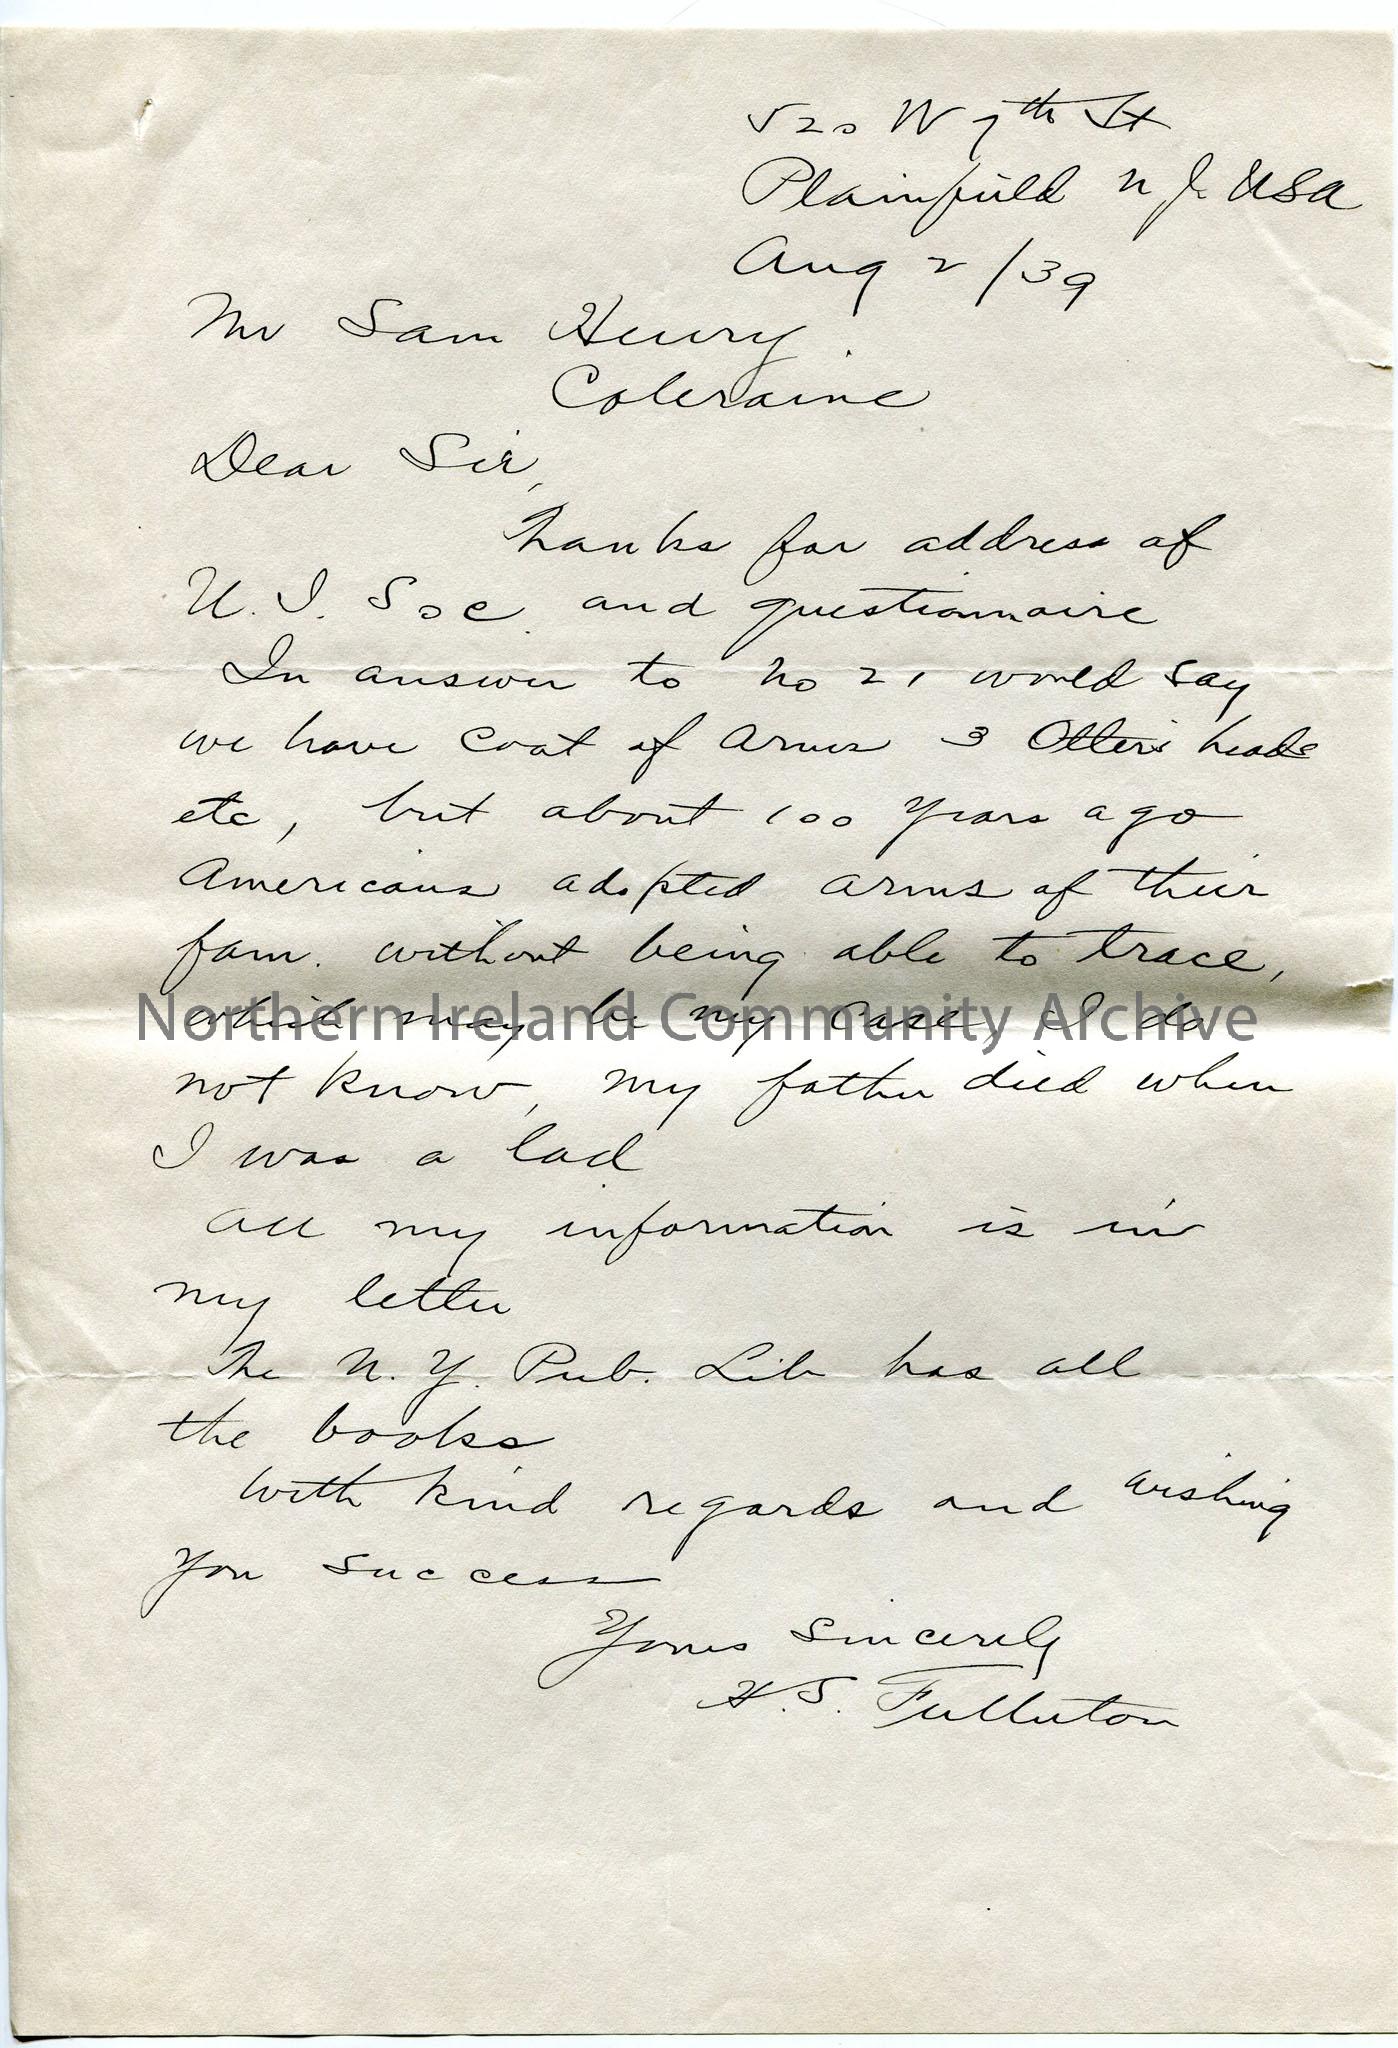 520 W 7th St
Plainfield N J. USA
Aug 2/39
Mr Sam Henry.
Coleraine
Dear Sir,
Thanks for address of
U. I. Soc. and questionnaire
In answer to No 21 would say
we have Coat of Arms 3 Otters heads
etc, but about 100 years ago
Americans adopted arms of their
fam. without being able to trace,
which may be my case, I do
not know, my father died when
I was a lad
All my information is in
my letter
The N. Y. Pub. Lib has all
the books
With kind regards and wishing
you success
Yours Sincerely
H. S. Fullerton
Northern Ireland Community Archive